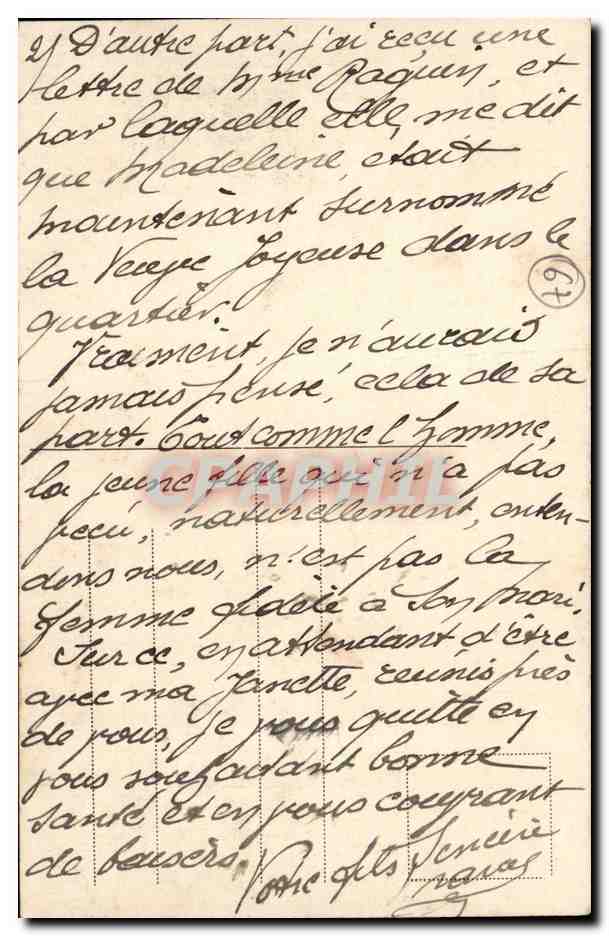 2) D'autre part, j'ai reçu une
lettre de Mme Raquin, et
par laquelle elle, me dit
que Madeleine, était
maintenant surnommé
la Veuve Joyeuse dans le
quartier.
67
Vraiment, je n'aurais
jamais pensé, cela de sa
part. Tout comme l'homme,
la jeune fille qui n'a pas
vécu, naturellement, enten-
dons nous, n'est pas la
femme fidèle à son mari.
Sur ce, en attendant d'être
avec ma Janette, reunis près
de vous, je vous quitte en
vous souhaitant bonne
santé et en vous couvrant
de baisers.
Votre fils sincère
CPAPHIL